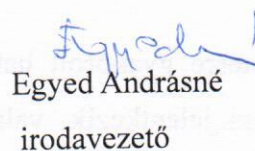 Egyed Andrásné
irodavezető